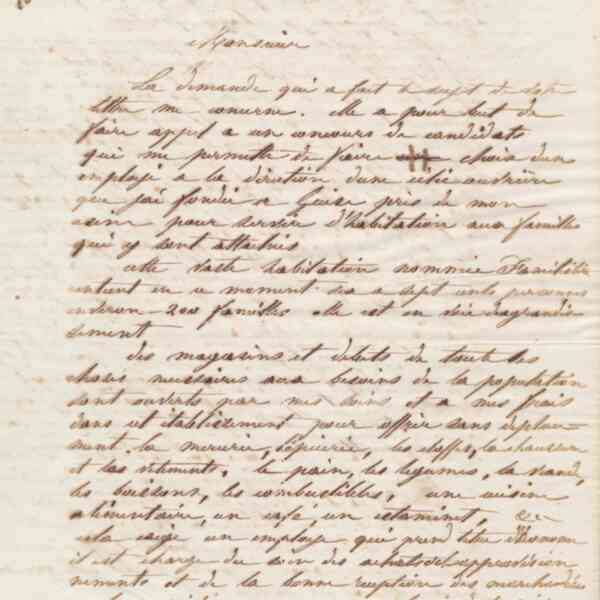 Monsieur
La demande qui a fait le sujet de votre
lettre me concerne. elle a pour but de
faire appel a un concours de candidats
qui me permette de faire choix dun
employé a la direction dune cité ouvrière
que jai fondée a Guise près de mon
usine pour servir d'habitation aux familles
qui y sont attachées
cette vaste habitation nommée Familistère
contient en ce moment six a sept cents personnes
environ 200 familles elle est en voie dagrandis
sement
des magasins et debits de toutes les
choses necessaires aux besoins de la population
sont ouverts par mes soins et a mes frais
dans cet établissement pour offrir sans deplace=
ment. la mercerie, lépicerie, les étoffes, la chaussure
et les vêtements, le pain, les légumes, la viande,
les boissons, les combustibles, une cuisine
alimentaire, un café, un estaminet, &a
cela exige un employé qui prend titre d'économe
il est chargé du soin des achats et approvision
nements et de la bonne reception des marchandises